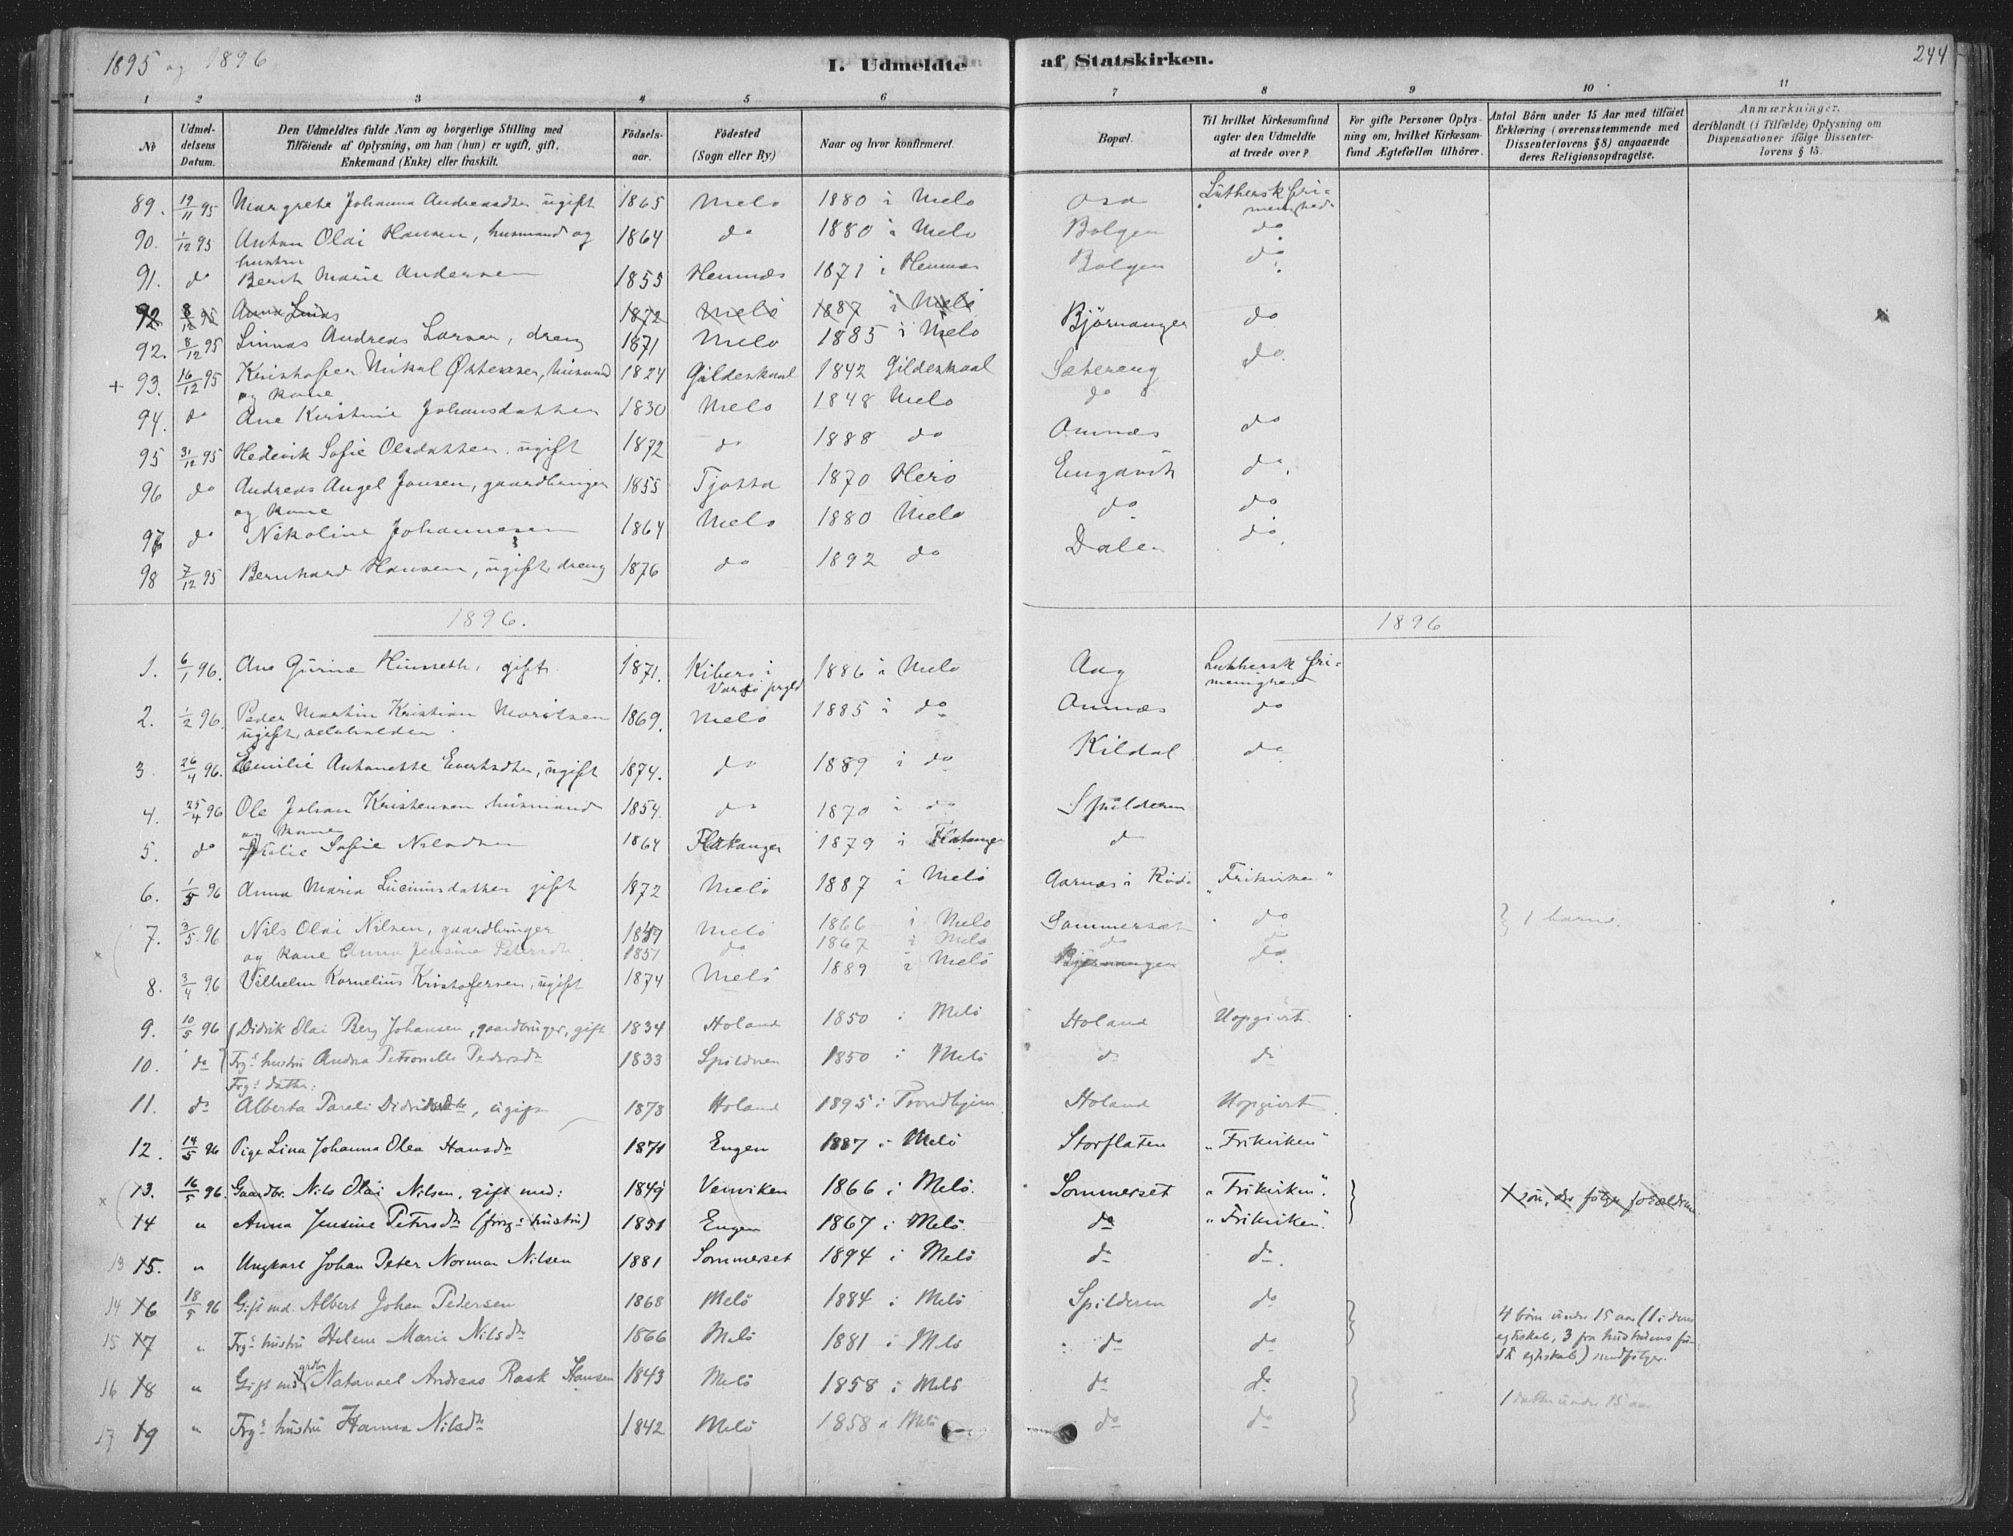 1895 og 1896
I. Udmeldte af Statskirken.
244
1 2 3 4 5 6 7 8 9 10 11
No
Udmeldelsens Datum.
Den Udmeldtes fulde Navn og borgerlige Stilling med Tilføiende af Oplysning, om han (hun) er ugift, gift, Enkemand (Enke) eller fraskilt.
Fødselsaar.
Fødested (Sogn eller By)
Naar og hvor konfirmeret.
Bopæl.
Til hvilket Kirkesamfund agter den Udmeldte at træde over?
For gifte Personer Oplysning om, hvilket Kirkesamfund Ægtefællen tilhører.
Antal Børn under 15 Aar med tilføiet Erklæring (overensstemmende med Dissenterlovens § 8) angaaende deres Religionsopdragelse.
Anmærkninger, deriblandt (i Tilfælde) Oplysning om Dispensationer ifølge Dissenterlovens § 15.
89. 19/11 95 Margrete Johanna Andreasdtr ugift 1865 Melø 1880 i Melø Osa Luthersk frimenighed
90. 1/12 95 Anton Olai Hansen, husmand og 1864 do 1880 i Melø Bolgen do
hustru
91. do Berit Marie Andersen 1853 Hemnæs 1871 i Hemnæs Bolgen do
92 8/12 95 Anna Linas 1872 Melö 1887 i Melö
92. 8/12 95 Linnas Andreas Larsen, dreng 1871 Melø 1885 i Melø Björnanger do
+ 93. 16/12 95 Kristofer Nikal husmand 1824 Gildeskaal 1842 Gildeskaal Sætereng do
og kone
94. do Ane Kirstine Johansdatter 1830 Melø 1848 Melø do
95 31/12 95 Hedevik Sofie Olsdatter, ugift 1872 do 1888 do Amnæs do
96 do Andreas Angel Jansen, gaardbruger 1855 Tjøtta 1870 Herø Engavik do
og kone
97 do Nikoline Johannesen 1864 Melø 1880 Melø do do
98 7/12 95 Bernhard Hansen, ugift dreng 1876 do 1892 do Dalen do
1896. 1896
1. 6/1 96. Ane Gurine gift 1871. Kiberg i Vardø prgld 1886 i Melø Aag Luthersk frimenighed
2. 1/2 96. Peder Martin Kristian Moritsen 1869. Melø 1885 i do Amnæs do
ugift, selvholden
3. 26/4 96. Emilie Antonette Evertsdtr, ugift 1874. do 1889 i do Kildal do
4. 25/4 96 Ole Johan Kristensen husmand 1854. do 1870 i do Spilderen
og kone
5. do Sofie Nilsdtr 1864 Flatanger 1879 i Flatanger do
6. 1/5 96 Anna Maria Luciusdatter gift 1872 Melö 1887 i Melö Aarnæs i Rödö "Frikirken"
x 7. 3/5 96 Nils Olai Nilsen, gaardbruger 1849 Melö 1866 i Melø Sommerset do } 1 barn.
og kone Anna Jensine Petersdtr 1851 do 1867 i Melø do do
8. 3/4 96 Vilhelm Kornelius Kristofersen, ugift 1874 Melö 1889 i Melö Björnangen do
9. 10/5 96 Didrik Olai Berg Johansen, gaardbruger, gift 1834 Holand 1850 i Melö Holand Uopgivet.
10. do Frgs hustru Andrea Petronelle Pedersdtr 1833 Spildren 1850 i Melö do do
Frgs datter:
11. do Alberta Pareli Didriksdtr, ugift 1878 Holand 1895 i Trondhjem Holand Uopgivet
12. 14/5 96 Pige Lina Johanna Olea Hansdtr 1871 Engen 1887 i Melö Storflaten "Frikirken"
x 13. 16/5 96. Gaardbr. Nils Olai Nilsen, gift med: 1849 Venviken 1866 i Melö. Sommerset "Frikirken". 1 søn, der følger forældrene
14 " Anna Jensine Petersdtr (forrigs hustru) 1851 Engen 1867 i Melö. do "Frikirken".
13 15. " Ungkarl Johan Peter Norman Nilsen 1881 Sommerset 1894 i Melö do do.
14 16 18/5 96 Gift md. Albert Johan Pedersen 1868 Melö 1884 i Melö Spilderen do 4 børn under 15 aar (1 i dette
15 17 " Frgs hustru Helene Marie Nilsdtr 1866 Melö 1881 i Melö do do egteskab, 3 fra hustruens før-
ste egteskab) medfølger.
16 18 " Gift md grdbr Natanael Andreas Rask Hansen 1843 Melö 1858 i Melö do do 1 datter under 15 aar
17 19 " Frgs hustru Hanna Nilsdtr 1842 Melö 1858 i Melö do do